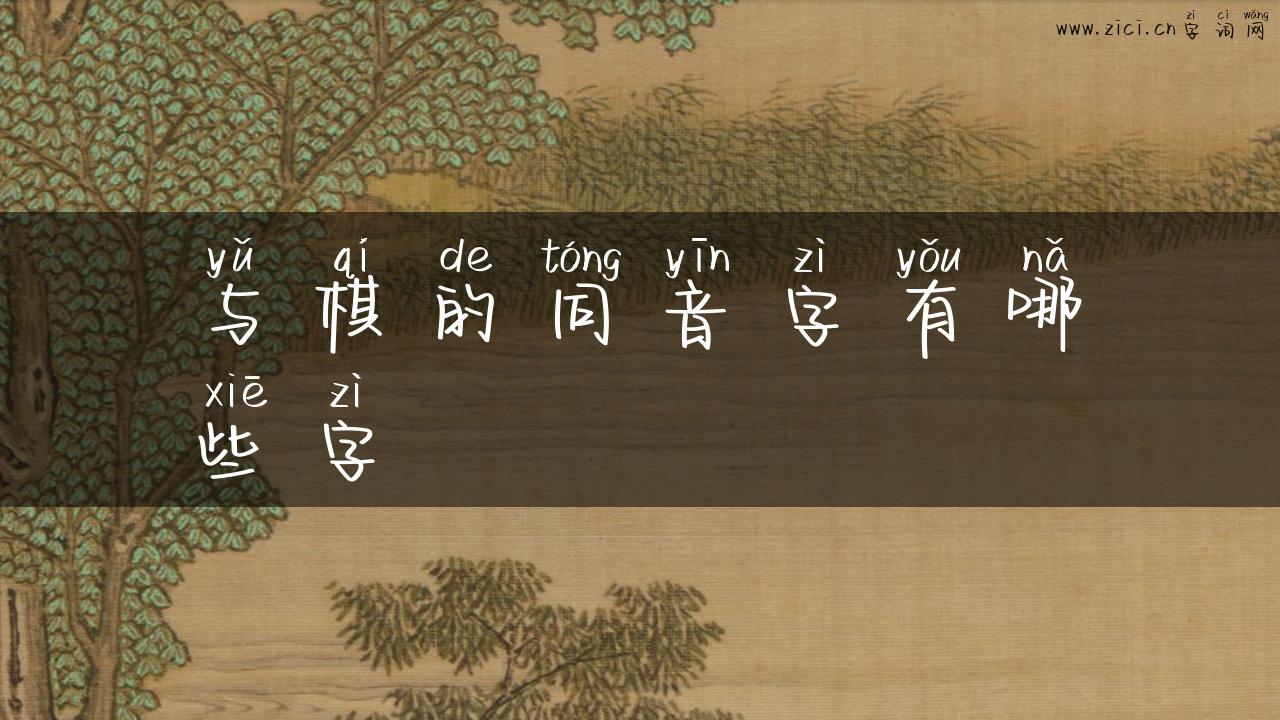 zì cí wǎng
www.zici.cn字词网
yǔ qí de tóng yīn zì yǒu nǎ
与棋的同音字有哪
xiē zì
些字